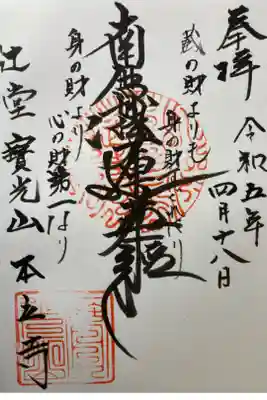 奉拝 令和五年
四月十八日
蔵の財よりも
身の財すぐれたり
南無妙法蓮華経
身の財より
心の財第一なり
辻堂 寳光山 本立寺